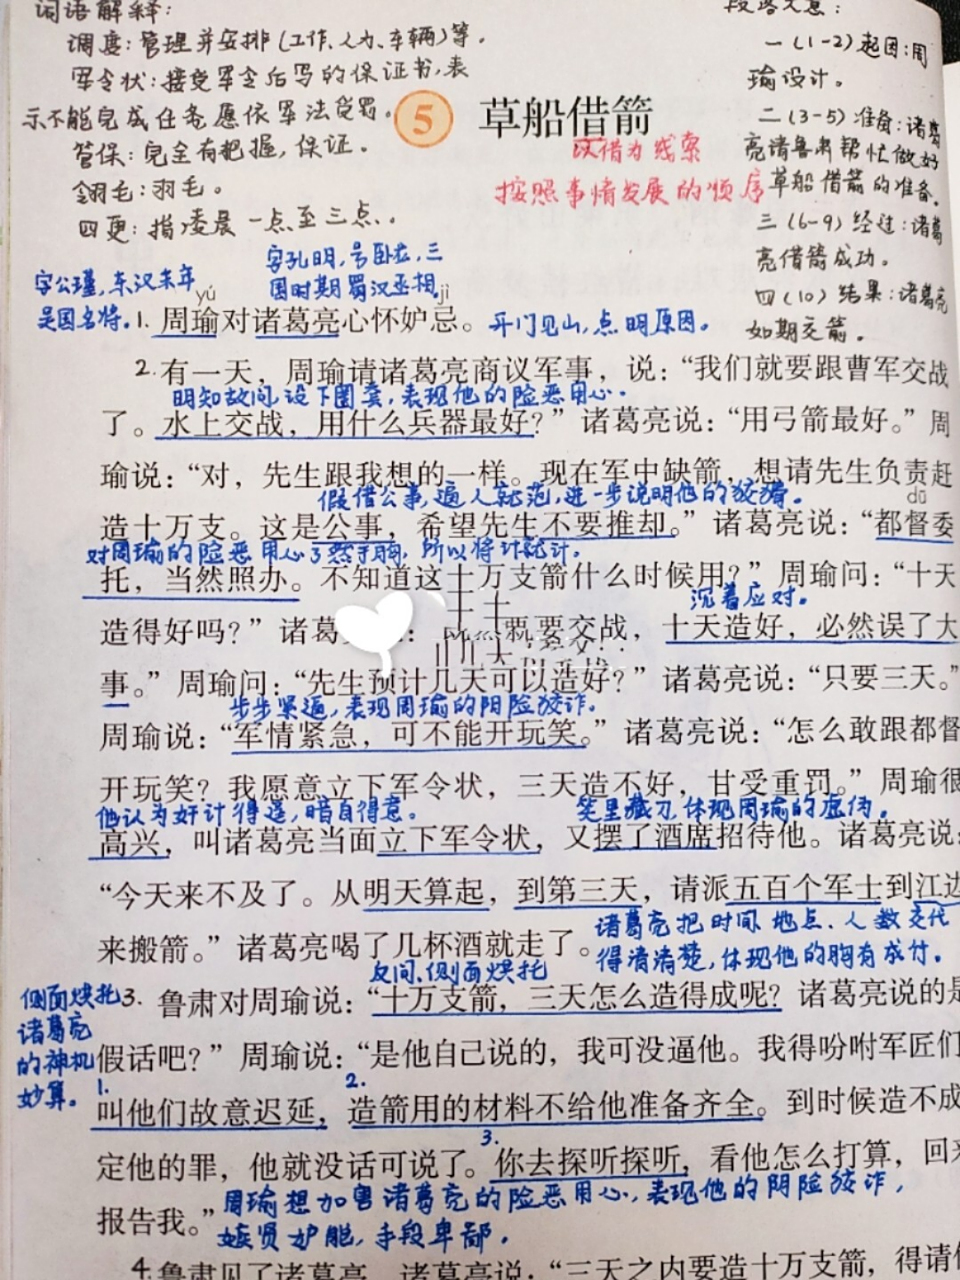 词语解释：
调度：管理并安排（工作、人力、车辆）等。
军令状：接受军令后写的保证书，表
示不能完成任务愿依军法受罚。
管保：完全有把握，保证。
翎毛：羽毛。
四更：指凌晨一点至三点。
段落大意：
一（1-2）起因：周
瑜设计。
二（3-5）准备：诸葛
亮请鲁肃帮忙做好
草船借箭的准备。
三（6-9）经过：诸葛
亮借箭成功。
四（10）结果：诸葛亮
如期交箭。
5 草船借箭
以借为线索
按照事情发展的顺序
字公瑾，东汉末年
吴国名将。
字孔明，号卧龙，三
国时期蜀汉丞相。
yú jì
1. 周瑜对诸葛亮心怀妒忌。 开门见山，点明原因。
2. 有一天，周瑜请诸葛亮商议军事，说：“我们就要跟曹军交战
明知故问，设下圈套，表现他的险恶用心。
了。水上交战，用什么兵器最好？” 诸葛亮说：“用弓箭最好。” 周
瑜说：“对，先生跟我想的一样。现在军中缺箭，想请先生负责赶
假借公事，逼人就范，进一步说明他的狡猾。
dū
造十万支。这是公事，希望先生不要推却。” 诸葛亮说：“都督委
对周瑜的险恶用心了然于胸，所以将计就计。
托，当然照办。不知道这十万支箭什么时候用？” 周瑜问：“十天
沉着应对。
造得好吗？” 诸葛 既要交战，十天造好，必然误了大
事。” 周瑜问：“先生预计几天可以造好？” 诸葛亮说：“只要三天。”
步步紧逼，表现周瑜的阴险狡诈。
周瑜说：“军情紧急，可不能开玩笑。” 诸葛亮说：“怎么敢跟都督
开玩笑？我愿意立下军令状，三天造不好，甘受重罚。” 周瑜很
他认为奸计得逞，暗自得意。 笑里藏刀，体现周瑜的虚伪。
高兴，叫诸葛亮当面立下军令状，又摆了酒席招待他。诸葛亮说：
“今天来不及了。从明天算起，到第三天，请派五百个军士到江边
诸葛亮把时间、地点、人数交代
来搬箭。” 诸葛亮喝了几杯酒就走了。
得清清楚，体现他的胸有成竹。
反问，侧面烘托
侧面烘托
诸葛亮
的神机
妙算。
3. 鲁肃对周瑜说：“十万支箭，三天怎么造得成呢？诸葛亮说的是
假话吧？” 周瑜说：“是他自己说的，我可没逼他。我得吩咐军匠们
1. 2.
叫他们故意迟延，造箭用的材料不给他准备齐全。到时候造不成
3.
定他的罪，他就没话可说了。你去探听探听，看他怎么打算，回来
周瑜想加害诸葛亮的险恶用心，表现他的阴险狡诈，
报告我。”
嫉贤妒能，手段卑鄙。
4. 鲁肃见了诸葛亮，诸葛亮说：“三天之内要造十万支箭，得请你